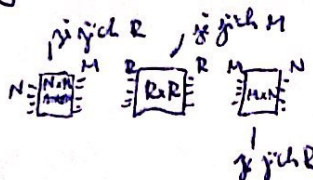 je jich R
je jich M
N N×M M R R×R R M M×N N
je jich R